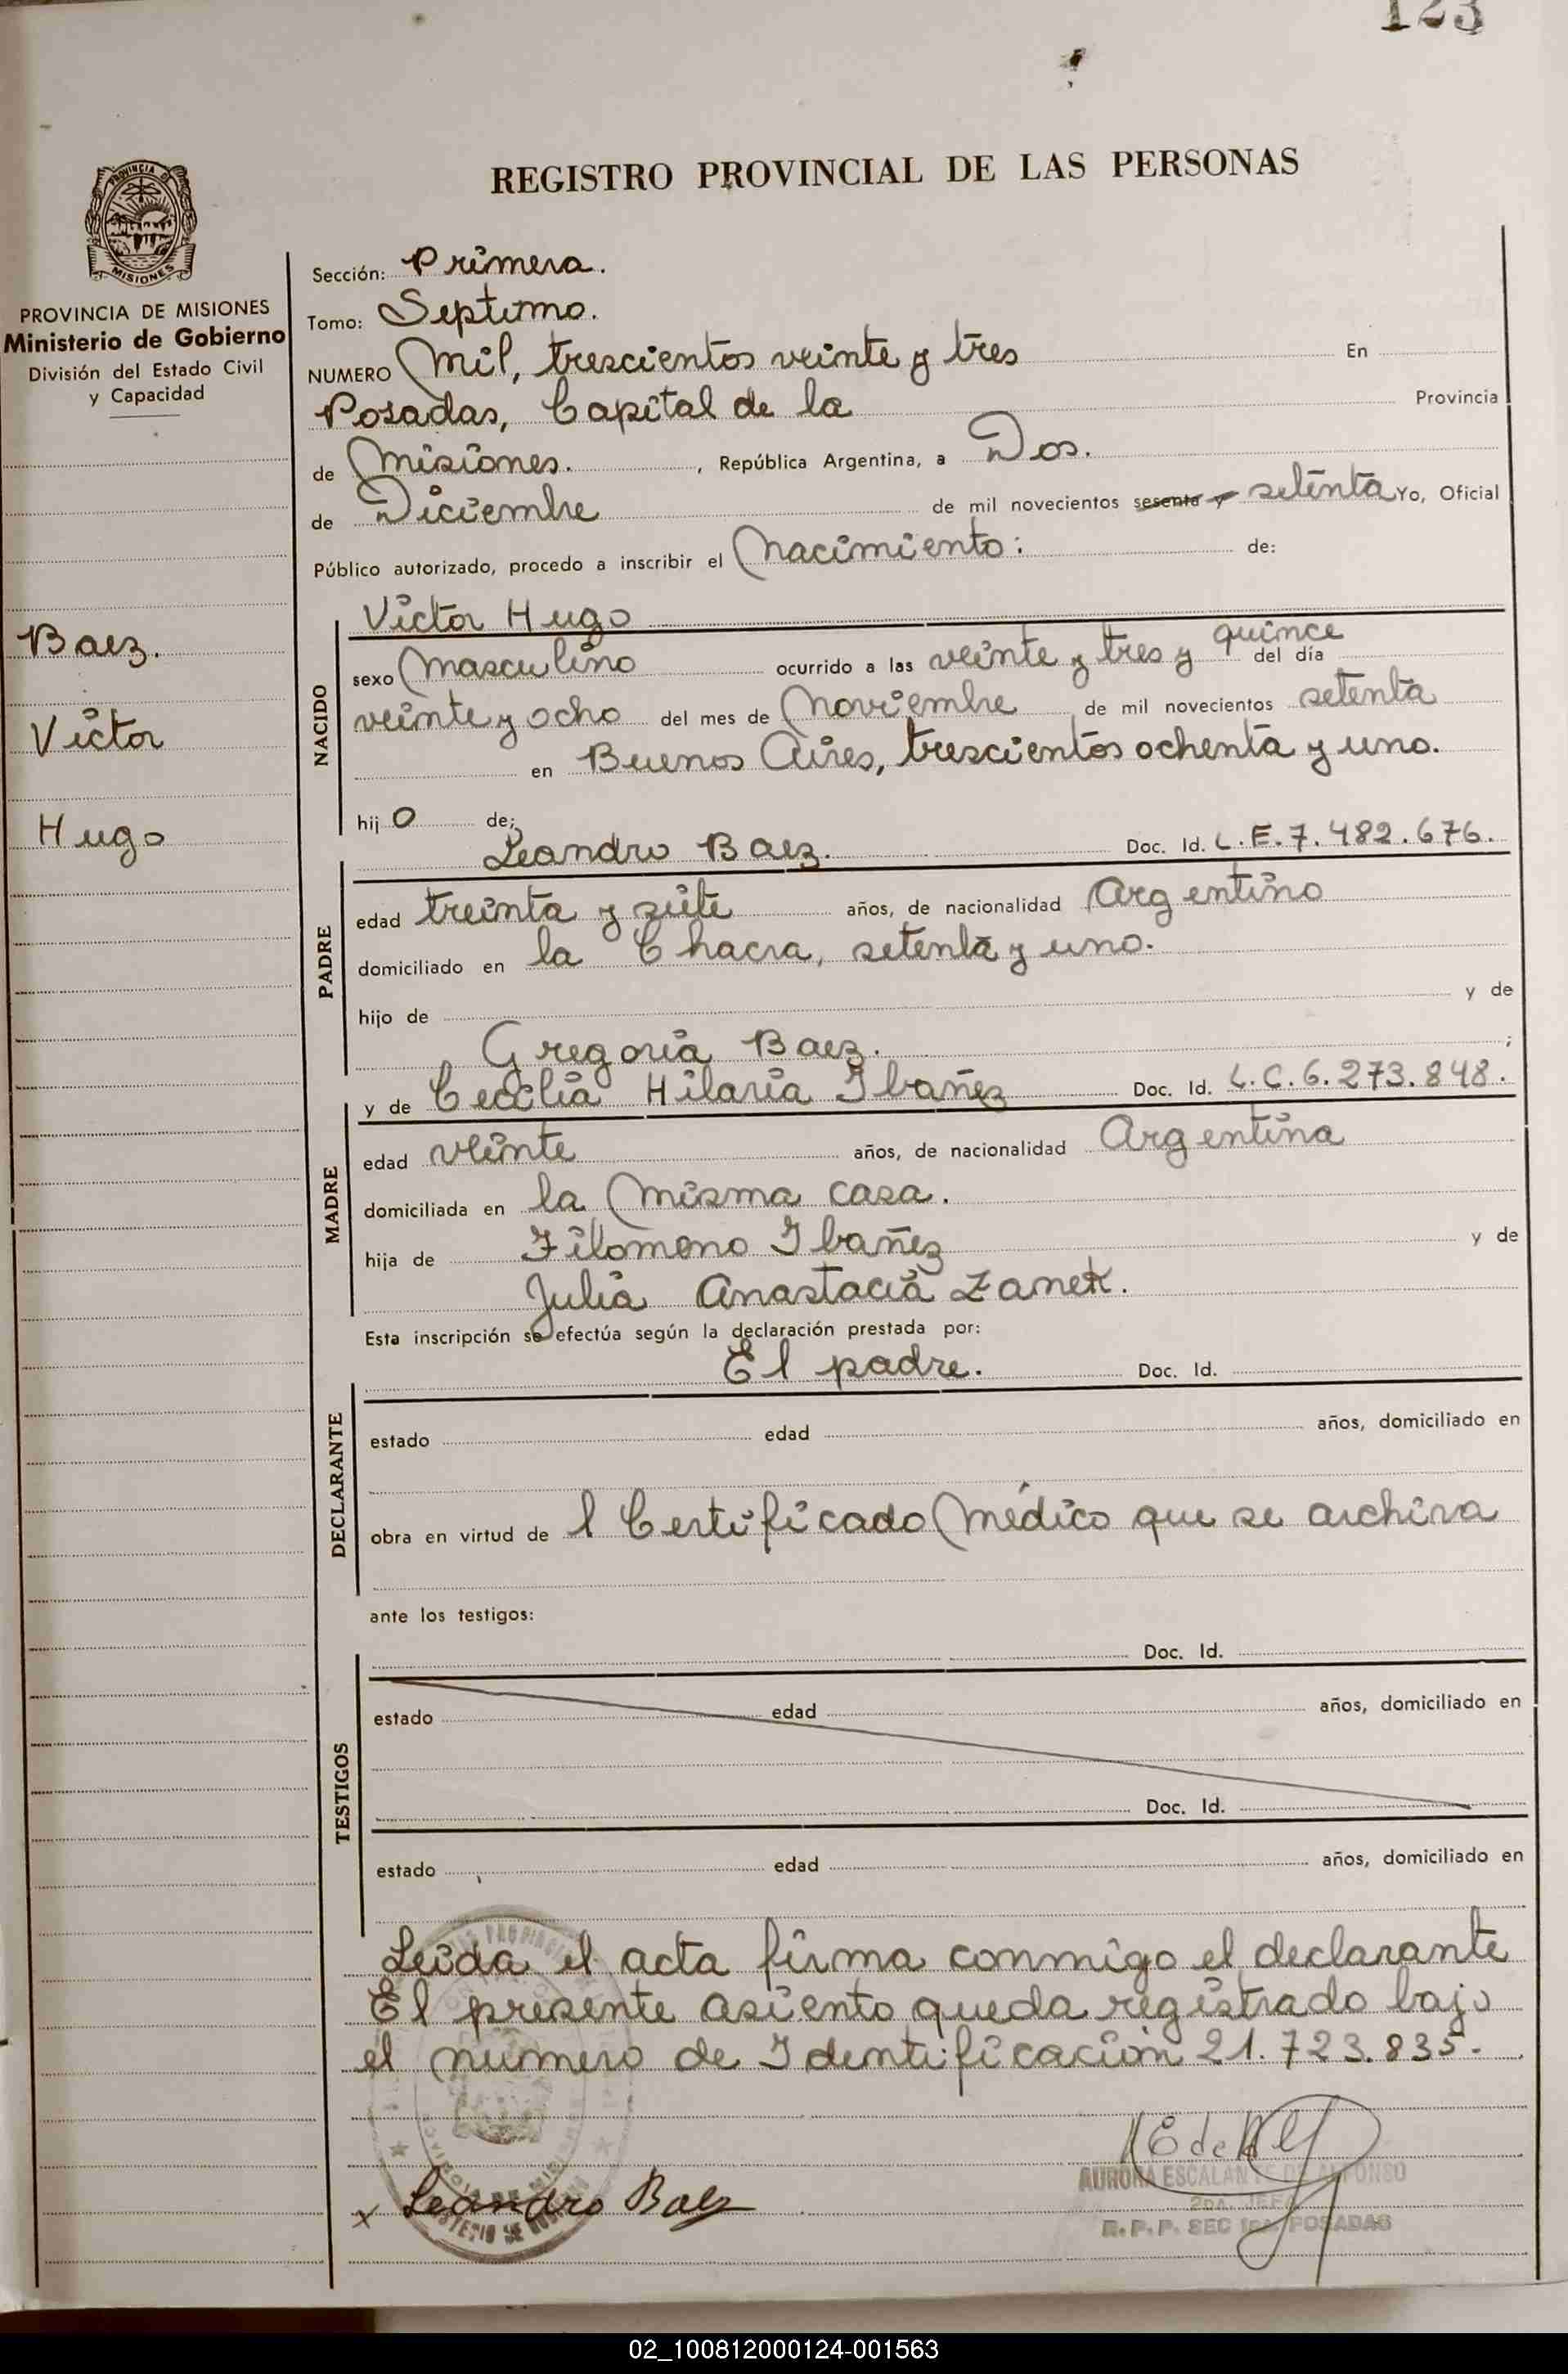 123
REGISTRO PROVINCIAL DE LAS PERSONAS
PROVINCIA DE MISIONES
Ministerio de Gobierno
División del Estado Civil
y Capacidad
Baez.
Victor
Hugo
Sección: Primera.
Tomo: Septimo.
NUMERO Mil, trescientos veinte y tres En
Posadas, Capital de la Provincia
de Misiones. , República Argentina, a Dos.
de Diciembre de mil novecientos sesenta y setenta Yo, Oficial
Público autorizado, procedo a inscribir el Nacimiento: de:
Victor Hugo
NACIDO
sexo Masculino ocurrido a las veinte y tres y quince del día
veinte y ocho del mes de Noviembre de mil novecientos setenta
en Buenos Aires, trescientos ochenta y uno.
hij o de;
Leandro Baez. Doc. Id. L.E. 7.482.676.
PADRE
edad treinta y siete años, de nacionalidad Argentino
domiciliado en la Chacra, setenta y uno.
hijo de y de
Gregoria Baez. ;
y de Cecilia Hilaria Ibañez Doc. Id. L.C. 6.273.848.
MADRE
edad veinte años, de nacionalidad Argentina
domiciliada en la misma casa.
hija de Filomeno Ibañez y de
Julia Anastacia Zanek.
Esta inscripción se efectúa según la declaración prestada por:
El padre. Doc. Id.
DECLARANTE
estado edad años, domiciliado en
obra en virtud de l Certificado Médico que se archiva
ante los testigos:
Doc. Id.
TESTIGOS
estado edad años, domiciliado en
Doc. Id.
estado edad años, domiciliado en
Leida el acta firma conmigo el declarante
El presente asiento queda registrado bajo
el numero de Identificación 21.723.835.
x Leandro Baez
AURORA ESCALANTE DE ALFONSO
2DA. JEFE
R.P.P. SEC 1RA. POSADAS
02_100812000124-001563